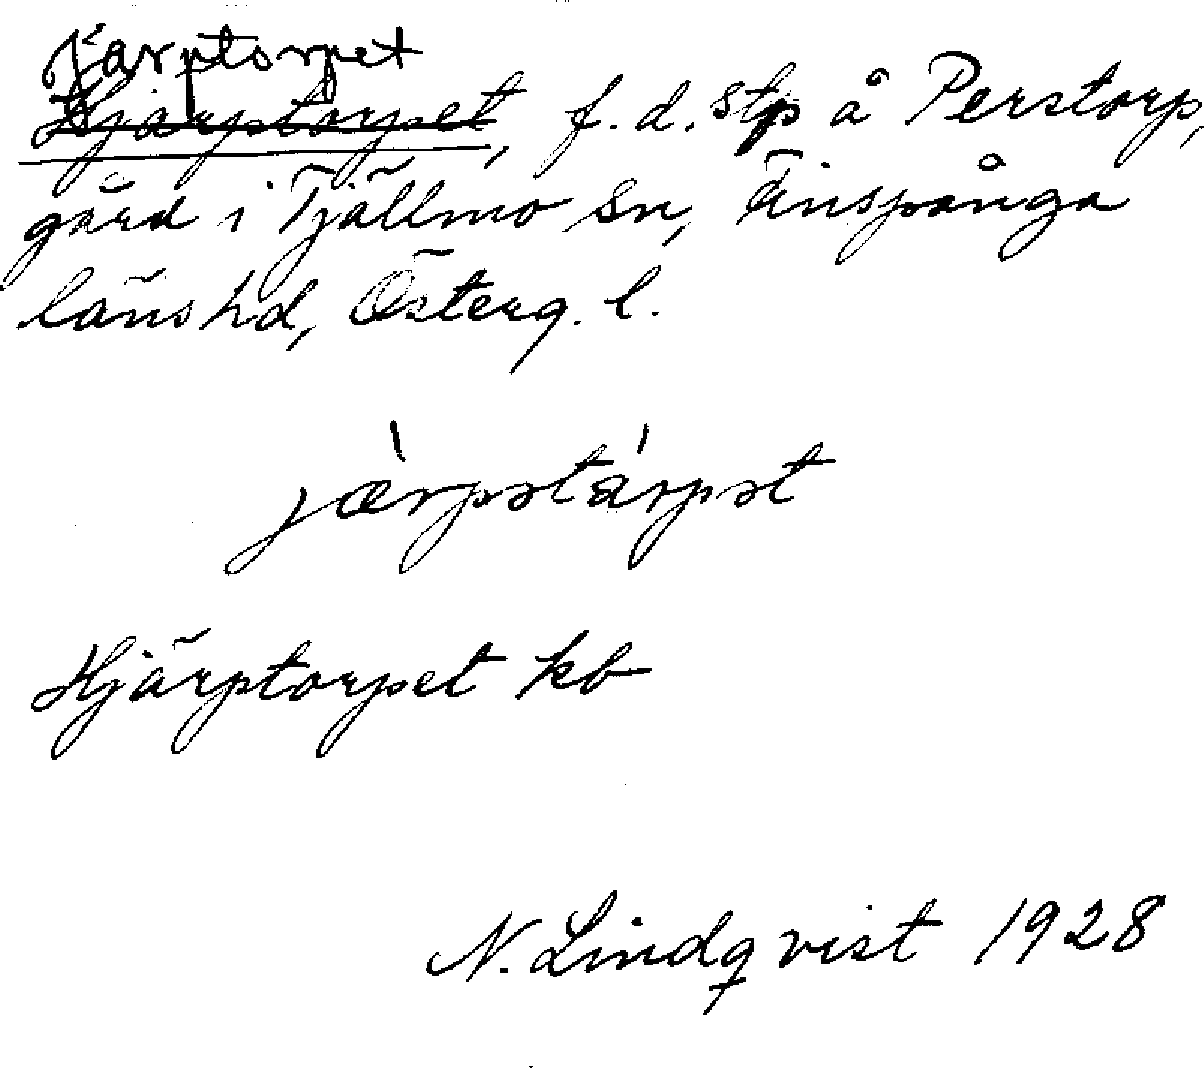 Järptorpet
Hjärptorpet, f.d. stp å Perstorp,
gård i Tjällmo sn, Finspånga
läns hd, Österg. l.
jæ̀rpətárpət
Hjärptorpet kb
N. Lindqvist 1928